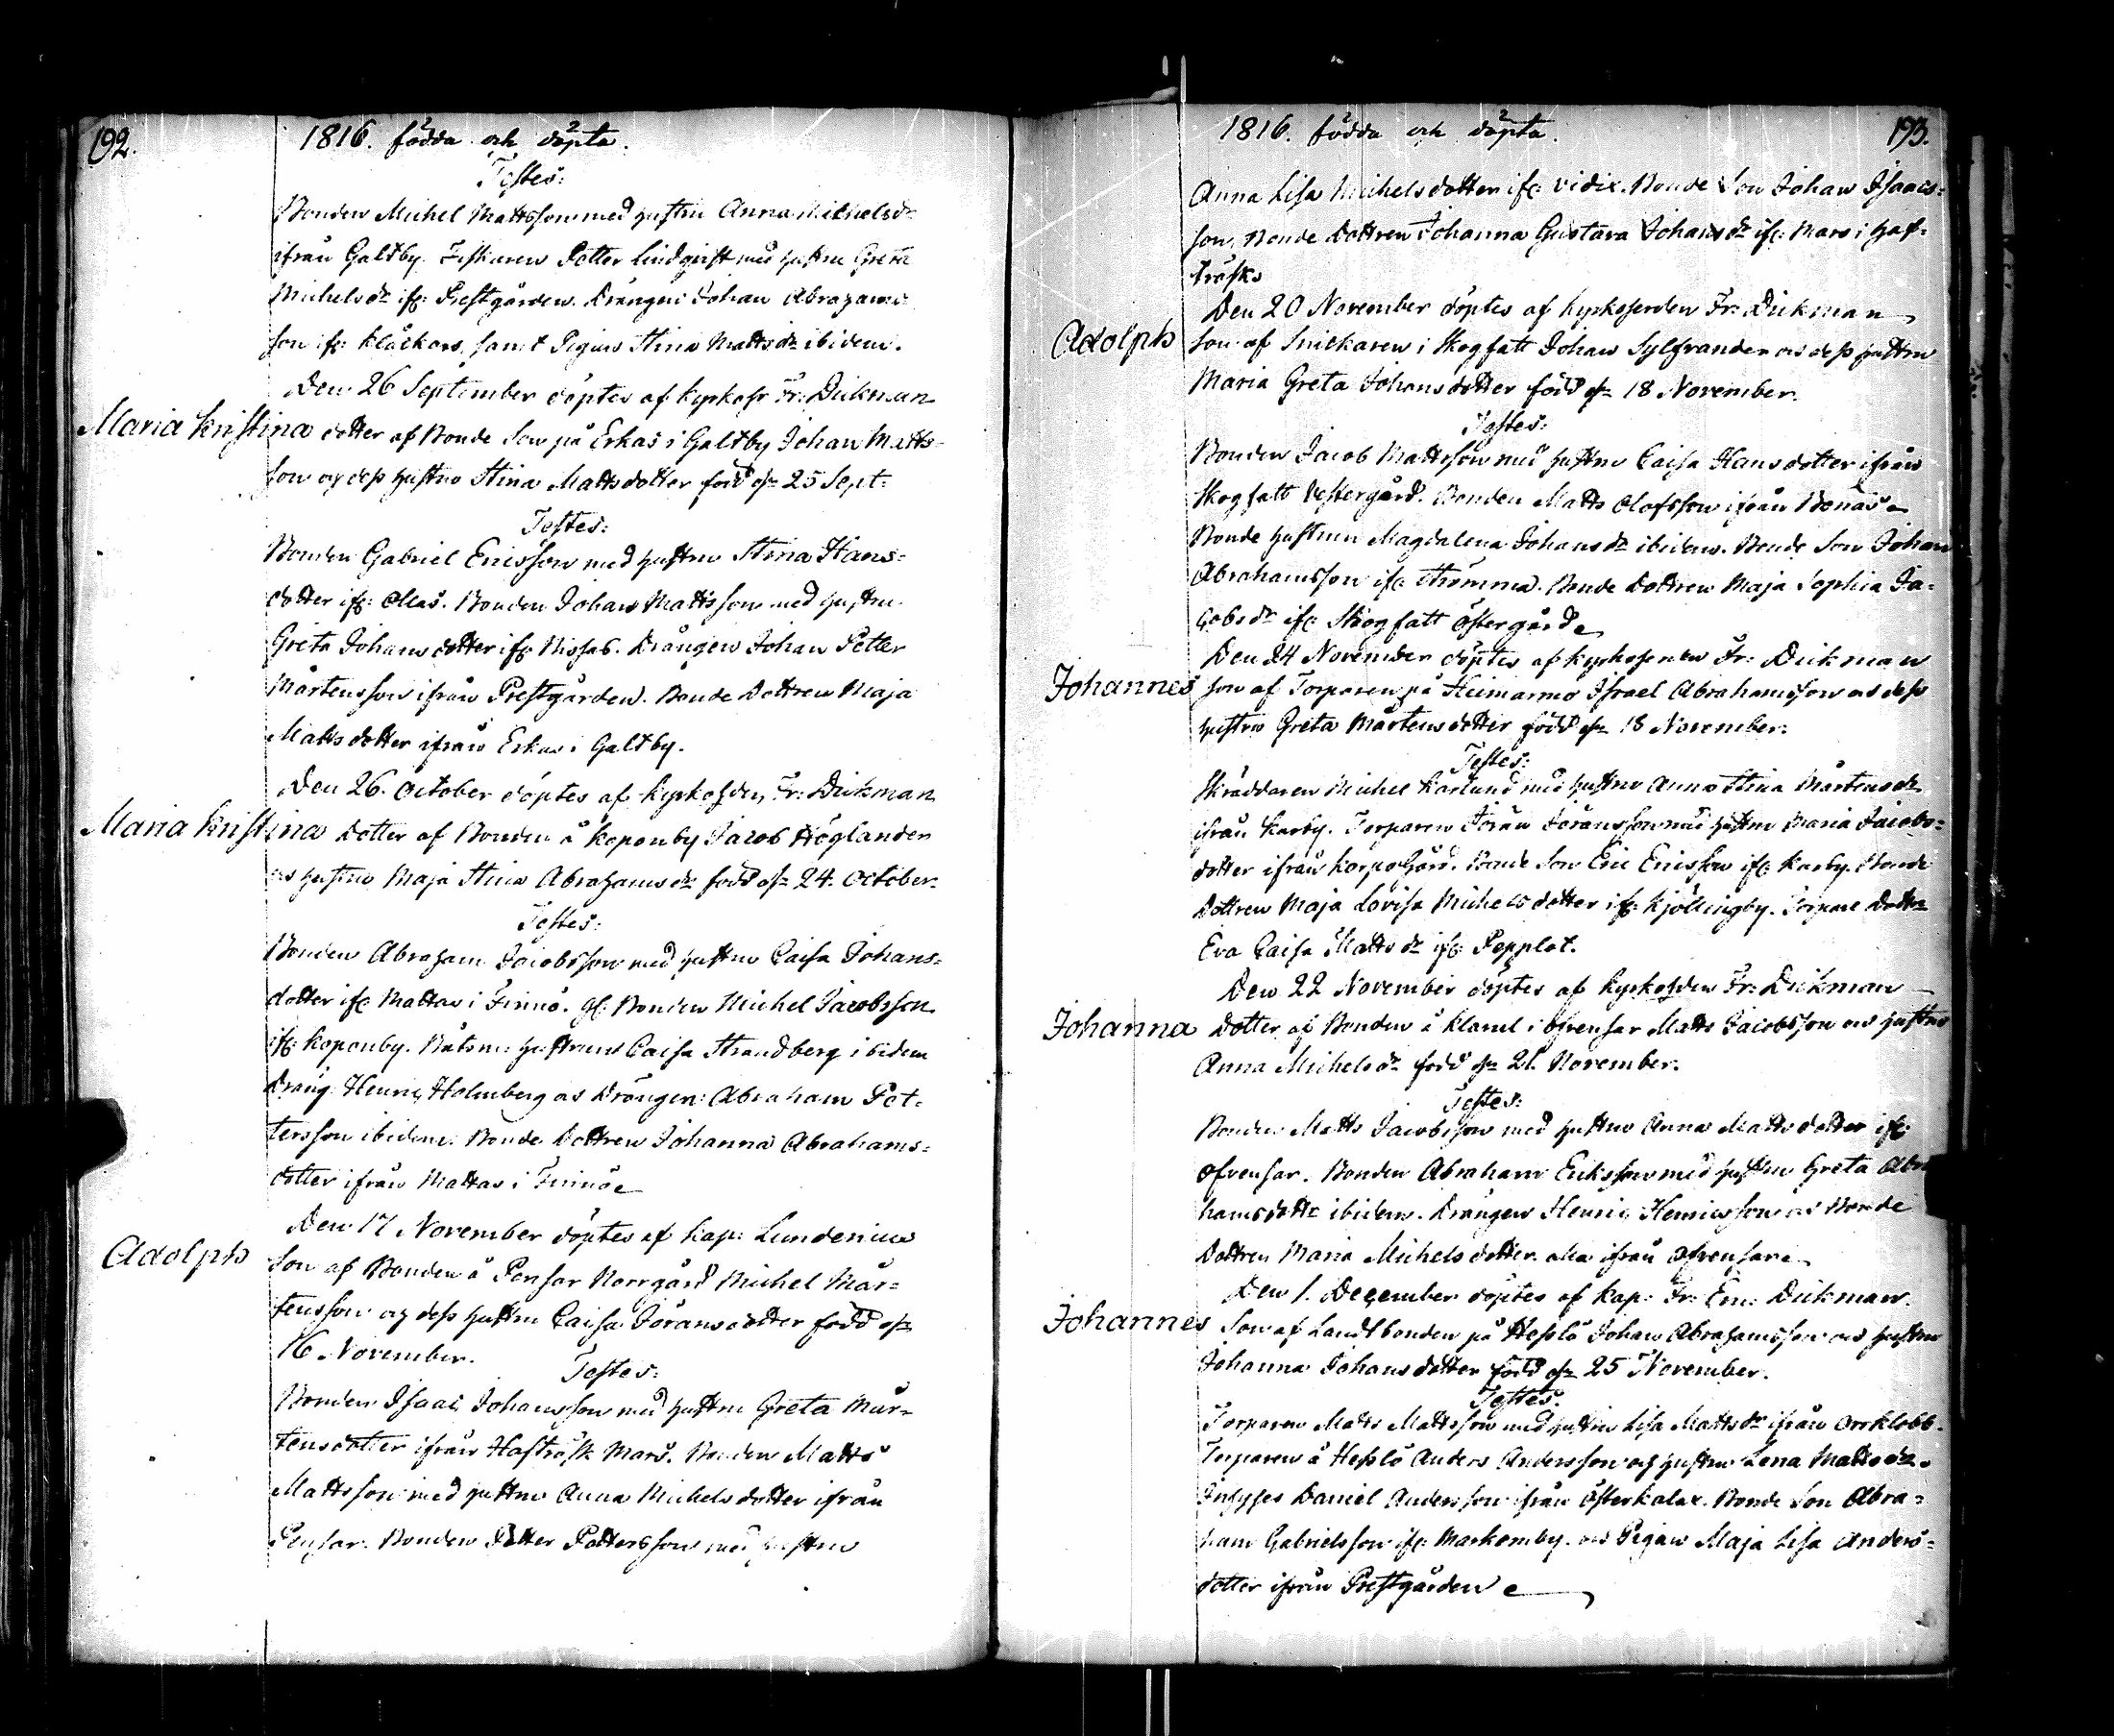 192.
1816. födda och döpta.
Testes:
Bonden Michel Mattsson med hustru Anna Michelsdr
ifrån Galtby. Fiskaren Petter Lindqvist med hustru Greta
Michelsdr ifr: Prestgården. Drängen Johan Abrahams-
son ifr: Klåckars, samt Pigan Stina Mattsdr ibidem.
Den 26 September döptes af Kyrkohr Fr: Dickman
Maria Kristina dotter af Bonde Son på Erkas i Galtby Johan Matts-
son og dess hustru Stina Mattsdotter född dn 25 Sept:
Testes:
Bonden Gabriel Ericsson med hustru Stina Hans-
dotter ifr: Ollas. Bonden Johan Mattsson med hustru
Greta Johansdotter ifr: Nissas. Drängen Johan Petter
Mårtensson ifrån Prestgården. Bonde Dottren Maja
Mattsdotter ifrån Erkas i Galtby.
Den 26. October döptes af Kyrkohden Fr: Dickman
Maria Kristina Dotter af Bonden å Koponby Jacob Höglander
os hustru Maja Stina Abrahamsdr född dn 24. October.
Testes:
Bonden Abraham Jacobsson med hustru Caisa Johans-
dotter ifr: Mattas i Finnö. gl: Bonden Michel Jacobsson
ifr: Koponby. Båtsm: hustrun Caisa Strandberg ibidem
Dräng Henric Holmberg os Drängen Abraham Pet-
tersson ibidem. Bonde Dottren Johanna Abrahams-
dotter ifrån Mattas i Finnö
Den 17 November döptes af Kap: Lundenius
Adolph Son af Bonden å Pensar Norrgård Michel Mår-
tensson og dess hustru Caisa Göransdotter född dn
16 November.
Testes:
Bonden Isaac Johansson med hustru Greta Mår-
tensdotter ifrån Hafträsk Mars. Bonden Matts
Mattsson med hustru Anna Michelsdotter ifrån
Pensar. Bonden Petter Pettersson med hustru
193.
1816. födda och döpta.
Anna Lisa Michelsdotter ifr: Vidix. Bonde Son Johan Isaacs-
son, Bonde Dottren Johanna Gustava Johansdr ifr: Mars i Haf-
träsk
Den 20 November döptes af Kyrkoherden Fr: Dickman
Adolph son af Snickaren i Skogfatt Johan Sylfvander os dess hustru
Maria Greta Johansdotter född dn 18 November.
Testes:
Bonden Jacob Mattsson med hustru Caisa Hansdotter ifrån
Skogfatt Vestergård. Bonden Matts Olofsson ifrån Bonäs
Bonde hustrun Magdalena Johansdr ibidem. Bonde Son Johan
Abrahamsson ifr: Strömma. Bonde Dottren Maja Sophia Ja-
cobsdr ifr: Skogfatt Östergård
Den 24 November döptes af Kyrkoherden Fr: Dickman
Johannes son af Torparen på Heimarmo Israel Abrahamsson os dess
hustru Greta Mårtensdotter född dn 18 November.
Testes:
Skräddaren Michel Karlund med hustru Anna Stina Mårtensdr
ifrån Karby. Torparen Göran Göransson med hustru Maria Jacobs-
dotter ifrån Korpogård. Bonde Son Eric Ericsson ifr: Karby. Bonde
Dottren Maja Lovisa Michelsdotter ifr: Kjöllingby. Torpare Dottr
Eva Caisa Mattsdr ifr: Pepplot.
Den 22 November döptes af Kyrkohden Fr: Dickman
Johanna Dotter af Bonden å Klamel i Öfvensar Matts Jacobsson os hustru
Anna Michelsdr född dn 21. November.
Testes:
Bonden Matts Jacobsson med hustru Anna Mattsdotter ifr:
Öfvensar. Bonden Abraham Ericksson med hustru Greta Abra
hamsdottr ibidem. Drängen Henric Henricsson os Bonde
Dottren Maria Michelsdotter alla ifrån Öfvensar
Den 1. December döptes af Kap: Fr: Em: Dickman.
Johannes Son af Landtbonden på Hesslö Johan Abrahamsson os hustru
Johanna Johansdotter född dn 25 November.
Testes.
Torparen Matts Mattsson med hustru Lisa Mattsdr ifrån Orrklobb.
Torparen å Hesslö Anders Andersson og hustru Lena Mattsdr.
Inhyses Daniel Andersson ifrån Österkalax. Bonde Son Abra-
ham Gabrielsson ifr: Markomby. os Pigan Maja Lisa Anders-
dotter ifrån Prestgården